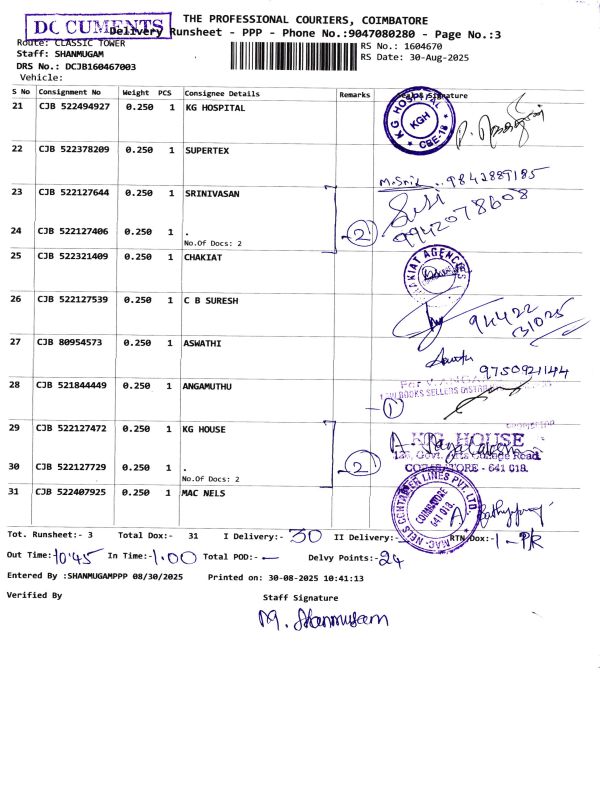 THE PROFESSIONAL COURIERS, COIMBATORE
DOCUMENTS
Delivery Runsheet - PPP - Phone No.:9047080280 - Page No.:3
Route: CLASSIC TOWER
RS No.: 1604670
Staff: SHANMUGAM
RS Date: 30-Aug-2025
DRS No.: DCJB160467003
Vehicle:
S No Consignment No Weight PCS Consignee Details Remarks Signature
21 CJB 522494927 0.250 1 KG HOSPITAL
KG HOSPITAL
KGH
CBE-18
22 CJB 522378209 0.250 1 SUPERTEX
9842889185
23 CJB 522127644 0.250 1 SRINIVASAN
9942078608
24 CJB 522127406 0.250 1 .
2
No.Of Docs: 2
25 CJB 522321409 0.250 1 CHAKIAT
26 CJB 522127539 0.250 1 C B SURESH
94422
31025
27 CJB 80954573 0.250 1 ASWATHI
9750921144
28 CJB 521844449 0.250 1 ANGAMUTHU
1
29 CJB 522127472 0.250 1 KG HOUSE
KG HOUSE
Govt. Arts College Road,
30 CJB 522127729 0.250 1 .
2
COIMBATORE - 641 018.
No.Of Docs: 2
31 CJB 522407925 0.250 1 MAC NELS
MAC NELS CONTAINER LINES PVT. LTD.
COIMBATORE
641 018.
Tot. Runsheet:- 3 Total Dox:- 31 I Delivery:- 30 II Delivery:- RTN Dox:- 1 - PK
Out Time:- 10.45 In Time:- 1.00 Total POD:- — Delvy Points:- 24
Entered By :SHANMUGAMPPP 08/30/2025 Printed on: 30-08-2025 10:41:13
Verified By Staff Signature
M. Shanmugam